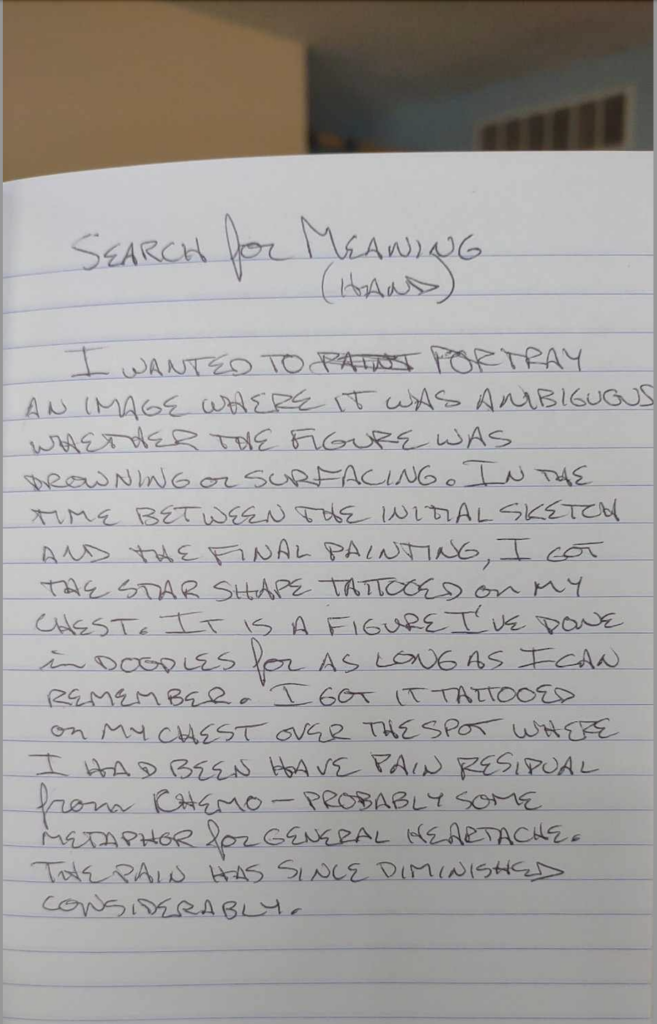 SEARCH for MEANING
(HAND)
I WANTED TO PAINT PORTRAY
AN IMAGE WHERE IT WAS AMBIGUOUS
WHETHER THE FIGURE WAS
DROWNING or SURFACING. IN THE
TIME BETWEEN THE INITIAL SKETCH
AND THE FINAL PAINTING, I GOT
THE STAR SHAPE TATTOOED on MY
CHEST. IT IS A FIGURE I'VE DONE
in DOODLES for AS LONG AS I CAN
REMEMBER. I GOT IT TATTOOED
on MY CHEST OVER THE SPOT WHERE
I HAD BEEN HAVE PAIN RESIDUAL
from CHEMO – PROBABLY SOME
METAPHOR for GENERAL HEARTACHE.
THE PAIN HAS SINCE DIMINISHED
CONSIDERABLY.